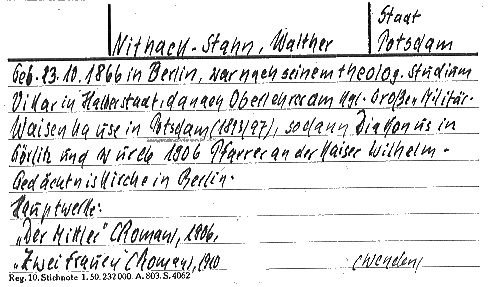 Nithack-Stahn, Walther
Stadt
Potsdam
Geb. 23.10.1866 in Berlin, war nach seinem theolog. Studium
Vikar in Halberstadt, danach Oberlehrer am Kgl. Großen Militär-
Waisenhause in Potsdam (1893/97), sodann Diakonus in
Görlitz und wurde 1906 Pfarrer an der Kaiser Wilhelm-
Gedächtniskirche in Berlin.
Hauptwerke:
„Der Mittler" (Roman), 1906,
„Zwei Frauen" (Roman), 1910
(wenden)
Reg. 10. Stichnote 1. 50. 232000. A. 803. S. 4062